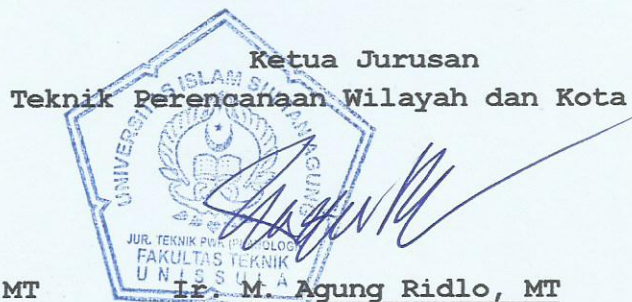 Ketua Jurusan
Teknik Perencanaan Wilayah dan Kota
UNIVERSITAS ISLAM SULTAN AGUNG
JUR. TEKNIK PWK (PLANOLOGI)
FAKULTAS TEKNIK
UNISSULA
MT Ir. M. Agung Ridlo, MT